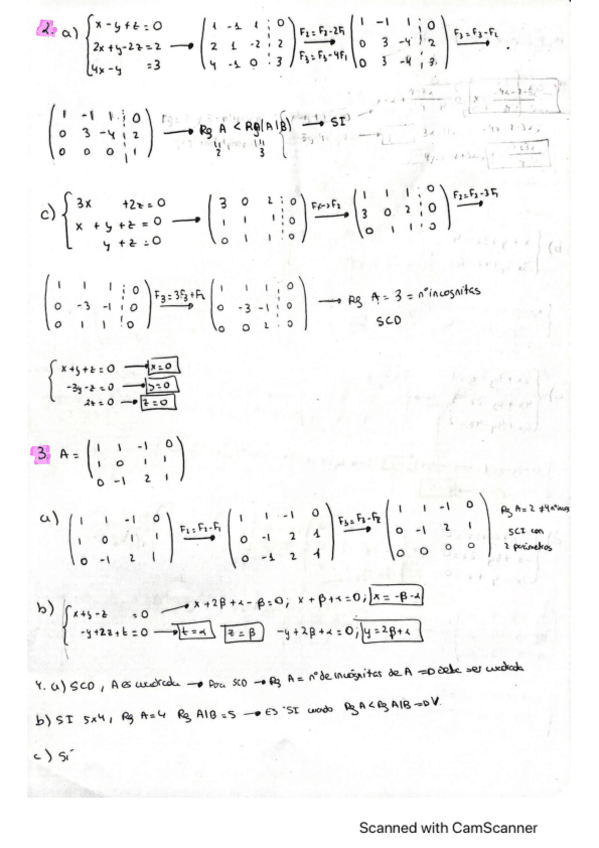 2. a) { x - y + z = 0
2x + y - 2z = 2
4x - y = 3
→ ( 1 -1 1 0
2 1 -2 2
4 -1 0 3 )
F2 = F2 - 2F1
F3 = F3 - 4F1
( 1 -1 1 0
0 3 -4 2
0 3 -4 3 )
F3 = F3 - F2
( 1 -1 1 0
0 3 -4 2
0 0 0 1 )
→ Rg A < Rg(A|B) → SI
2 3
c) { 3x + 2z = 0
x + y + z = 0
y + z = 0
→ ( 3 0 2 0
1 1 1 0
0 1 1 0 )
( 1 1 1 0
3 0 2 0
0 1 1 0 )
F2 = F2 - 3F1
( 1 1 1 0
0 -3 -1 0
0 1 1 0 )
F3 = 3F3 + F2
( 1 1 1 0
0 -3 -1 0
0 0 2 0 )
→ Rg A = 3 = nº incognitas
SCD
{ x + y + z = 0 → x = 0
-3y - z = 0 → y = 0
2z = 0 → z = 0
3. A = ( 1 1 -1 0
1 0 1 1
0 -1 2 1 )
a) ( 1 1 -1 0
1 0 1 1
0 -1 2 1 )
F2 = F2 - F1
( 1 1 -1 0
0 -1 2 1
0 -1 2 1 )
F3 = F3 - F2
( 1 1 -1 0
0 -1 2 1
0 0 0 0 )
Rg A = 2 ≠ 4
SCI con
2 parámetros
b) { x + y - z = 0 → x + 2β + α - β = 0; x + β + α = 0; x = -β - α
-y + 2z + t = 0 → t = α z = β -y + 2β + α = 0; y = 2β + α
4. a) SCD, A es cuadrada → Para SCD → Rg A = nº de incógnitas de A => Debe ser cuadrada
b) SI 5x4, Rg A = 4 Rg A|B = 5 → Es SI cuando Rg A < Rg A|B => V.
c) Sí
Scanned with CamScanner